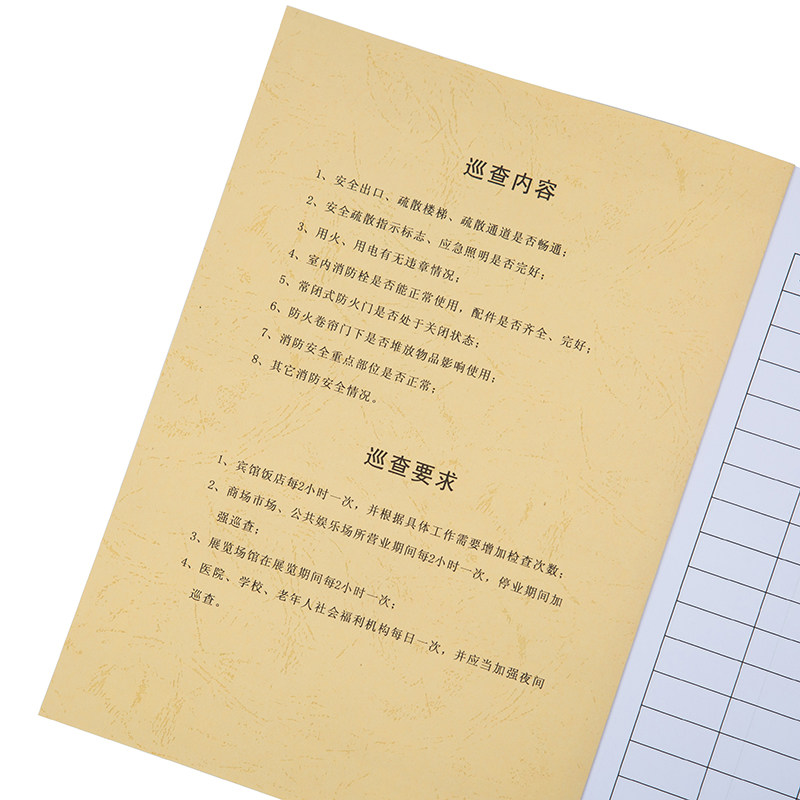 巡查内容
1、安全出口、疏散楼梯、疏散通道是否畅通；
2、安全疏散指示标志、应急照明是否完好；
3、用火、用电有无违章情况；
4、室内消防栓是否能正常使用，配件是否齐全、完好；
5、常闭式防火门是否处于关闭状态；
6、防火卷帘门下是否堆放物品影响使用；
7、消防安全重点部位是否正常；
8、其它消防安全情况。
巡查要求
1、宾馆饭店每2小时一次，并根据具体工作需要增加检查次数；
2、商场市场、公共娱乐场所营业期间每2小时一次，停业期间加
强巡查；
3、展览场馆在展览期间每2小时一次；
4、医院、学校、老年人社会福利机构每日一次，并应当加强夜间
巡查。